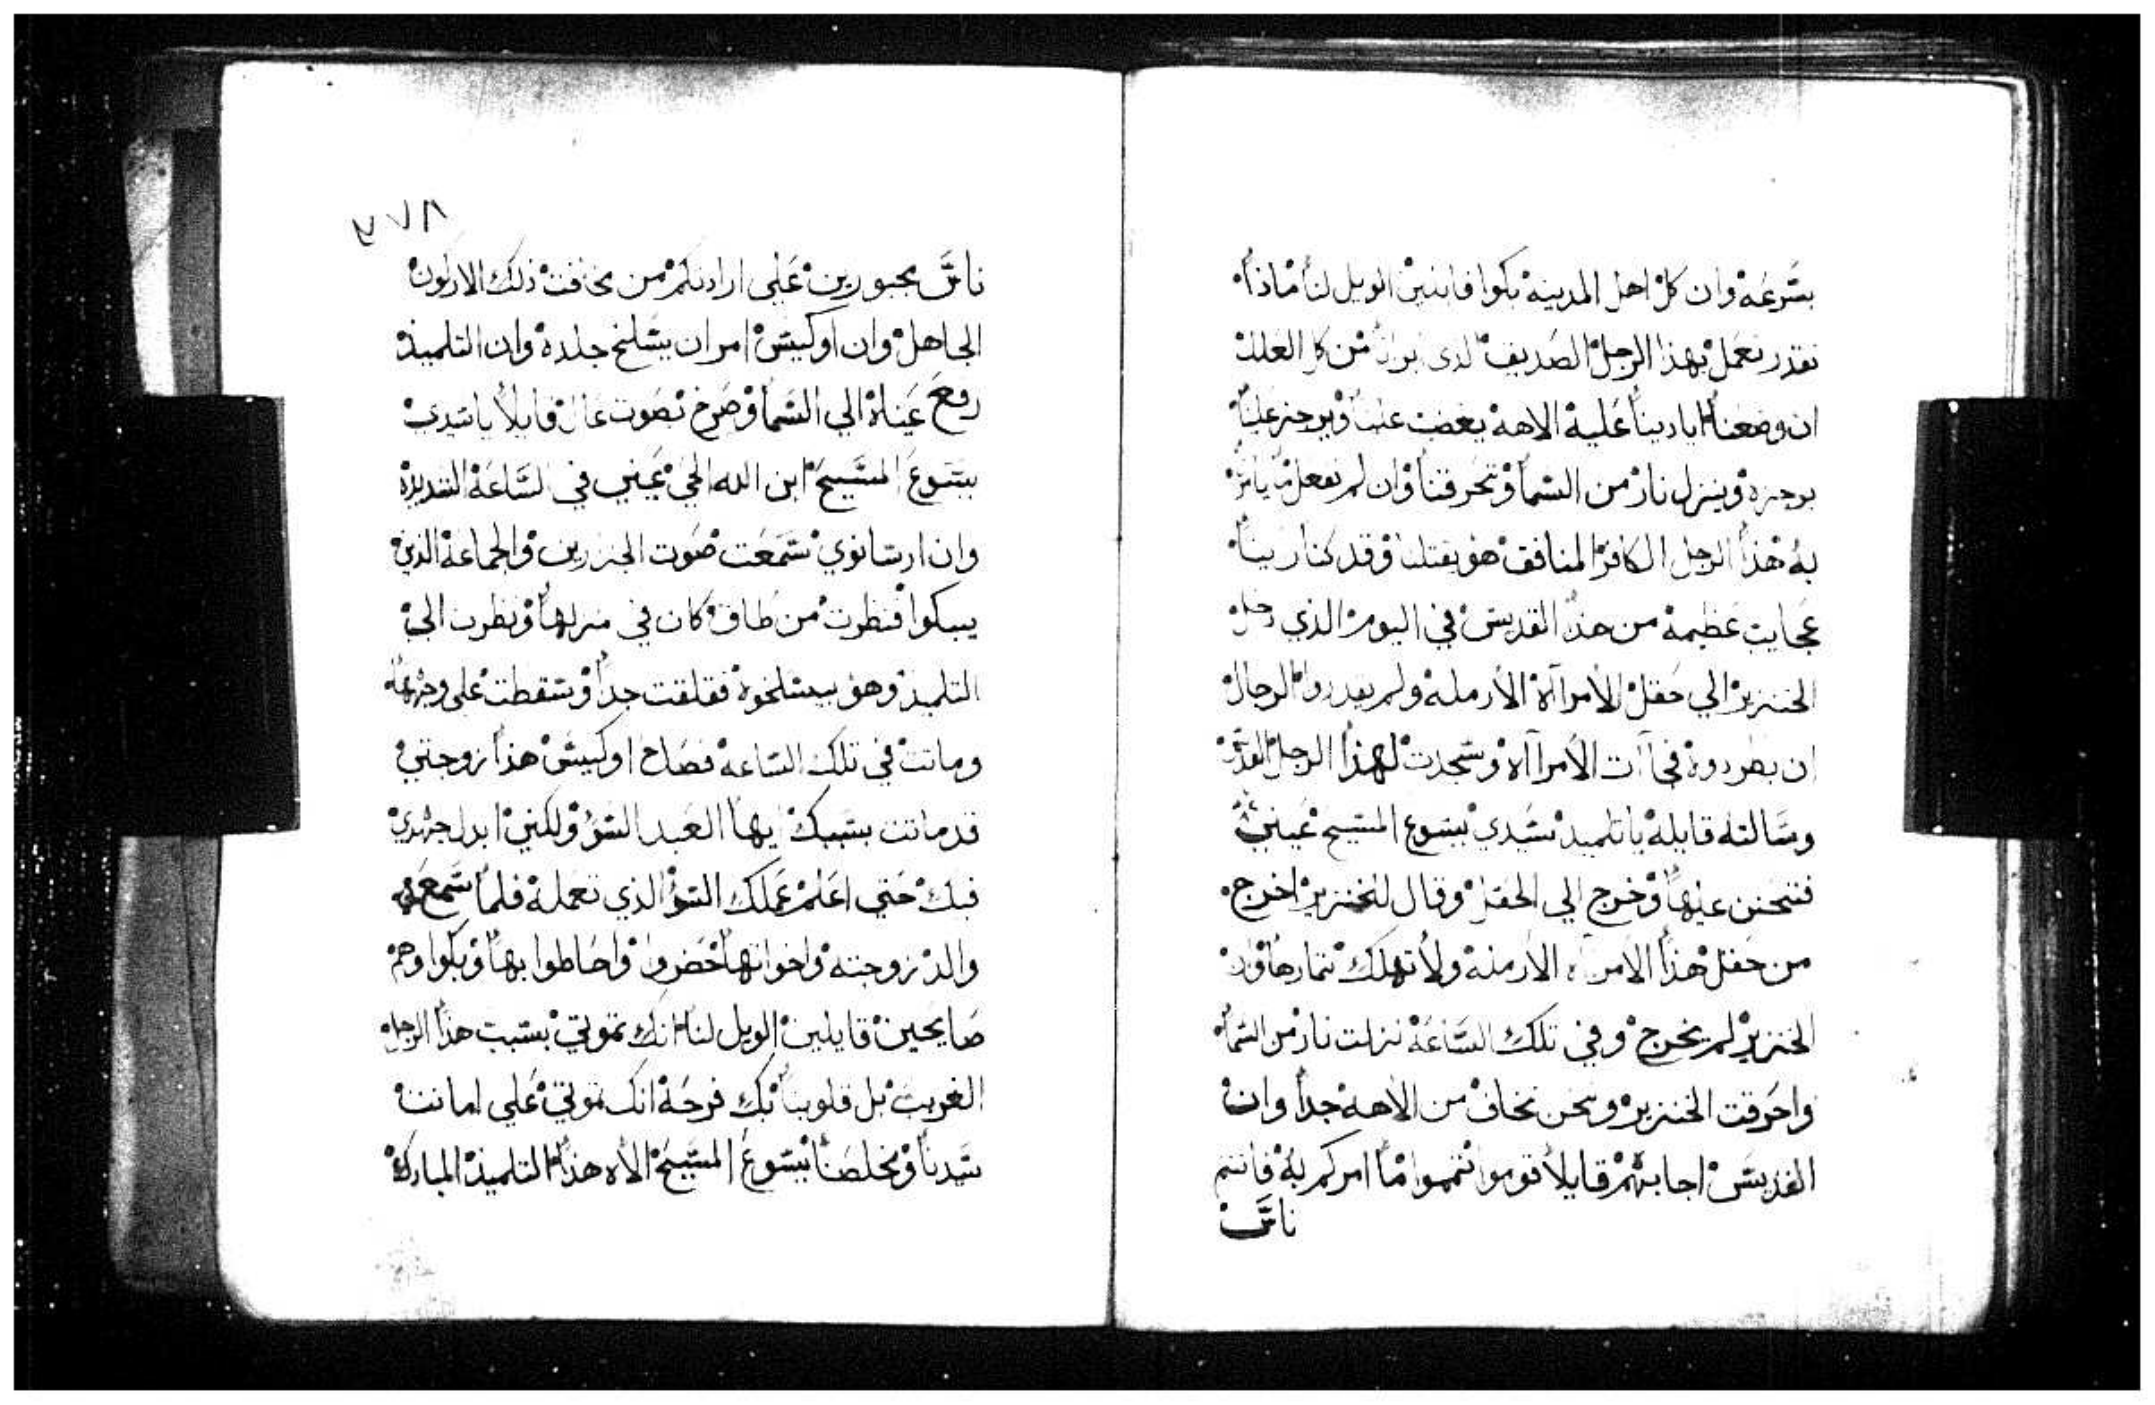 بسرعة وان كل اهل المدينه بكوا قايلين الويل لنا ماذا
نقدر نعمل بهذا الرجل الصديق الذى ابرانا من كل العلل
ان وضعنا ايادينا عليه الاهه يغضب علينا ويرجز علينا
برجزه وينزل نار من السما وتحرقنا وان لم نفعل ما يامر
به هذا الرجل الكافر المنافق هو يقتلنا وقد كنا راينا
عجايب عظيمة من هذا القديس في اليوم الذي دخل
الخنزير الي حقل الامرآة الأرملة ولم يقدروا الرجال
ان يطردوه فجاآت الأمرآاة وسجدت لهذا الرجل القديس
وسالته قايلة يا تلميذ سيدي يسوع المسيح عيني
فتحنن عليها وخرج الي الحقل وقال للخنزير اخرج
من حقل هذا الامراه الارمله ولا تهلك تمارها وان
الخنزير لم يخرج وفي تلك الساعة نزلت نار من السما
واحرقت الخنزير ونحن نخاف من الاهه جدا وان
القديس اجابهم قايلا قوموا تمموا ما امركم به فانتم
ناس
ناس مجبورين علي ارادتكم من مخافت ذلك الاركون
الجاهل وان اوكيس امر ان يسلخ جلده وان التلميذ
رفع عيناه الي السما وصرخ بصوت عال قايلا يا سيدي
يسوع المسيح ابن الله الحي عيني في الساعة الشديدة
وان ارسانوي سمعت صوت الجنزرين والجماعة الذين
يبكوا فنظرت من طاق كان في منزلها ونظرت الي
التلميذ وهو بيسلخوة فقلقت جدا وسقطت علي وجهها
وماتت في تلك الساعة فصاح اوكيس هذا زوجتي
قد ماتت بسببك ايها العبد السؤ ولكني ابدل جهدي
فيك حتي اعلم عملك السؤ الذي تعمله فلما سمع
والد زوجته واخواتها حضروا واحاطوا بها وبكوا وهم
صايحين قايلين الويل لنا انك تموتي بسبب هذا الرجل
الغريب بل قلوبنا بك فرحة انك تموتي علي امانت
سيدنا ومخلصنا يسوع المسيح الأه هذا التلميذ المبارك